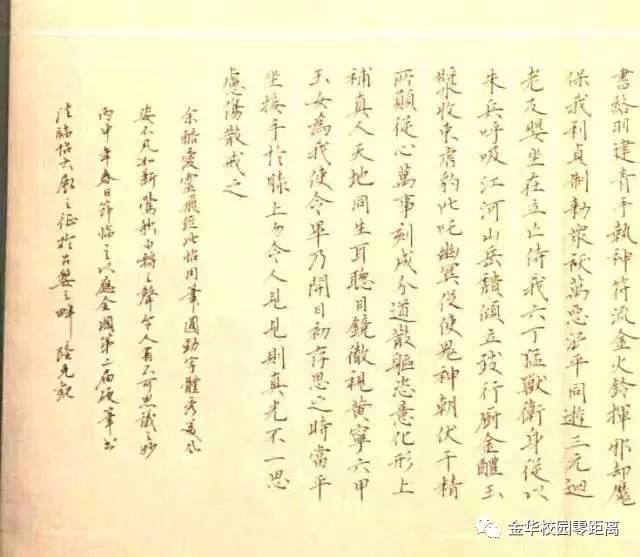 書絡羽建青手執神符流金火鈴揮邪却魔
保我利貞制勑衆祅萬惡泯平同遊三元迴
老反嬰坐在立亡侍我六丁猛獸衛身從以
朱兵呼吸江河山岳頹傾立致行廚金醴玉
漿收束虎豹叱吒幽冥役使鬼神朝伏千精
所願從心萬事剋成分道散軀恣意化形上
補真人天地同生耳聰目鏡徹視黃寧六甲
玉女為我使令畢乃開目初存思之時當平
坐接手於膝上勿令人見見則真光不一思
慮傷散戒之
余酷愛靈飛經此帖用筆圓動字體秀逸風
姿不凡如新鶯歌白囀之聲令人有不可思議之妙
丙申年春日節臨之以應全國第二屆硬筆書
法臨帖大展之征於古婺之畔
金华校园零距离